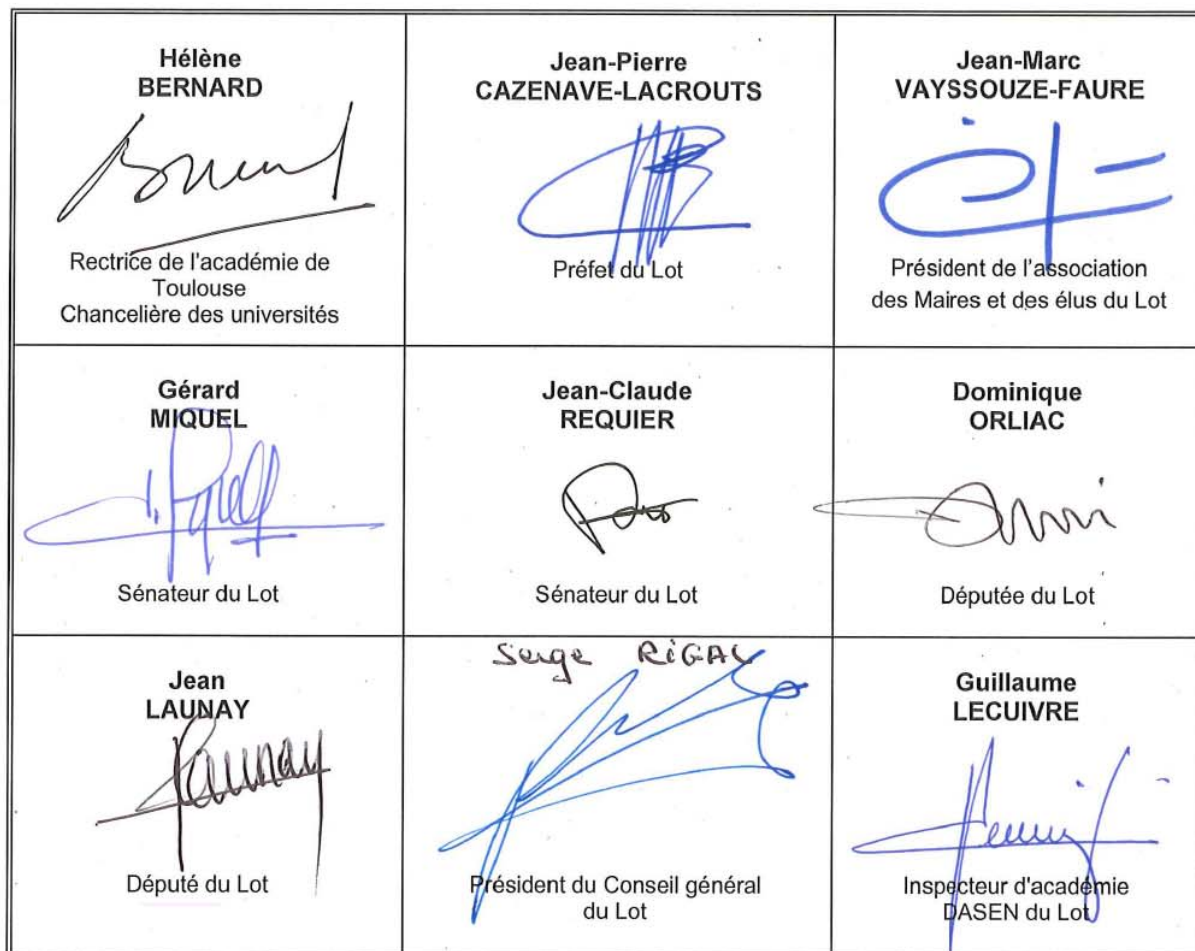 Hélène
BERNARD
Rectrice de l'académie de
Toulouse
Chancelière des universités
Jean-Pierre
CAZENAVE-LACROUTS
Préfet du Lot
Jean-Marc
VAYSSOUZE-FAURE
Président de l'association
des Maires et des élus du Lot
Gérard
MIQUEL
Sénateur du Lot
Jean-Claude
REQUIER
Sénateur du Lot
Dominique
ORLIAC
Députée du Lot
Jean
LAUNAY
Député du Lot
Serge RIGAL
Président du Conseil général
du Lot
Guillaume
LECUIVRE
Inspecteur d'académie
DASEN du Lot